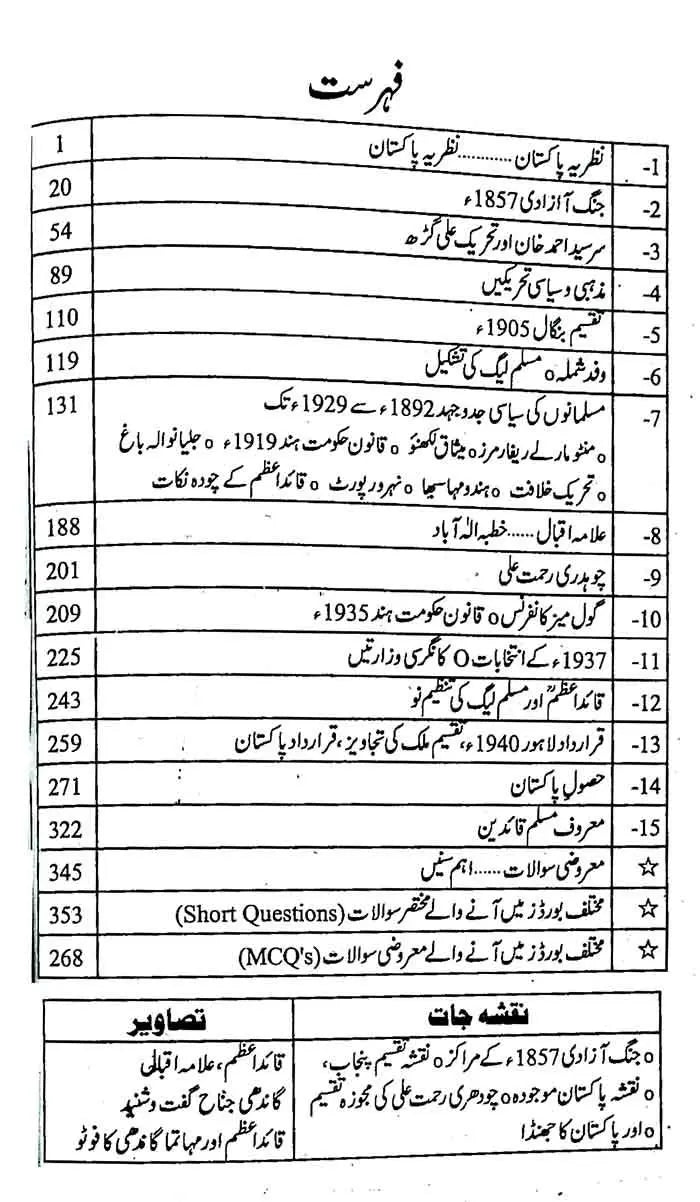 فہرست
1- نظریہ پاکستان ........... نظریہ پاکستان 1
2- جنگ آزادی 1857ء 20
3- سرسید احمد خان اور تحریک علی گڑھ 54
4- مذہبی و سیاسی تحریکیں 89
5- تقسیم بنگال 1905ء 110
6- وفد شملہ o مسلم لیگ کی تشکیل 119
7- مسلمانوں کی سیاسی جدوجہد 1892ء سے 1929ء تک 131
o منٹو مارلے ریفارمرز o میثاق لکھنؤ o قانون حکومت ہند 1919ء o جلیانوالہ باغ
o تحریک خلافت o ہندو مہاسبھا o نہرو رپورٹ o قائداعظم کے چودہ نکات
8- علامہ اقبال ...... خطبہ الٰہ آباد 188
9- چوہدری رحمت علی 201
10- گول میز کانفرنس o قانون حکومت ہند 1935ء 209
11- 1937ء کے انتخابات O کانگرسی وزارتیں 225
12- قائداعظمؒ اور مسلم لیگ کی تنظیم نو 243
13- قرارداد لاہور 1940ء، تقسیم ملک کی تجاویز، قرارداد پاکستان 259
14- حصولِ پاکستان 271
15- معروف مسلم قائدین 322
☆ معروضی سوالات ...... اہم سنیں 345
☆ مختلف بورڈز میں آنے والے مختصر سوالات (Short Questions) 353
☆ مختلف بورڈز میں آنے والے معروضی سوالات (MCQ's) 268
نقشہ جات
o جنگ آزادی 1857ء کے مراکز o نقشہ تقسیم پنجاب،
o نقشہ پاکستان موجودہ o چودھری رحمت علی کی مجوزہ تقسیم
o اور پاکستان کا جھنڈا
تصاویر
قائداعظم، علامہ اقبال
گاندھی جناح گفت و شنید
قائداعظم اور مہاتما گاندھی کا فوٹو